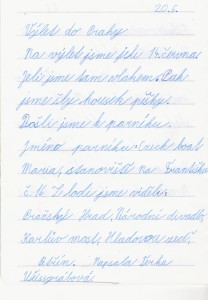 20.6.
Výlet do Prahy
Na výlet jsme jeli 14.června
Jeli jsme tam vlakem. Pak
jsme šli kousek pěšky.
Došli jsme k parníku.
Jméno parníku: Czech boat
Maria, stanoviště na Františku
č. 16. Z lodi jsme viděli:
Pražský Hrad, Národní divadlo,
Karlův most, Hladovou zeď,
Petřín. Napsala Terka